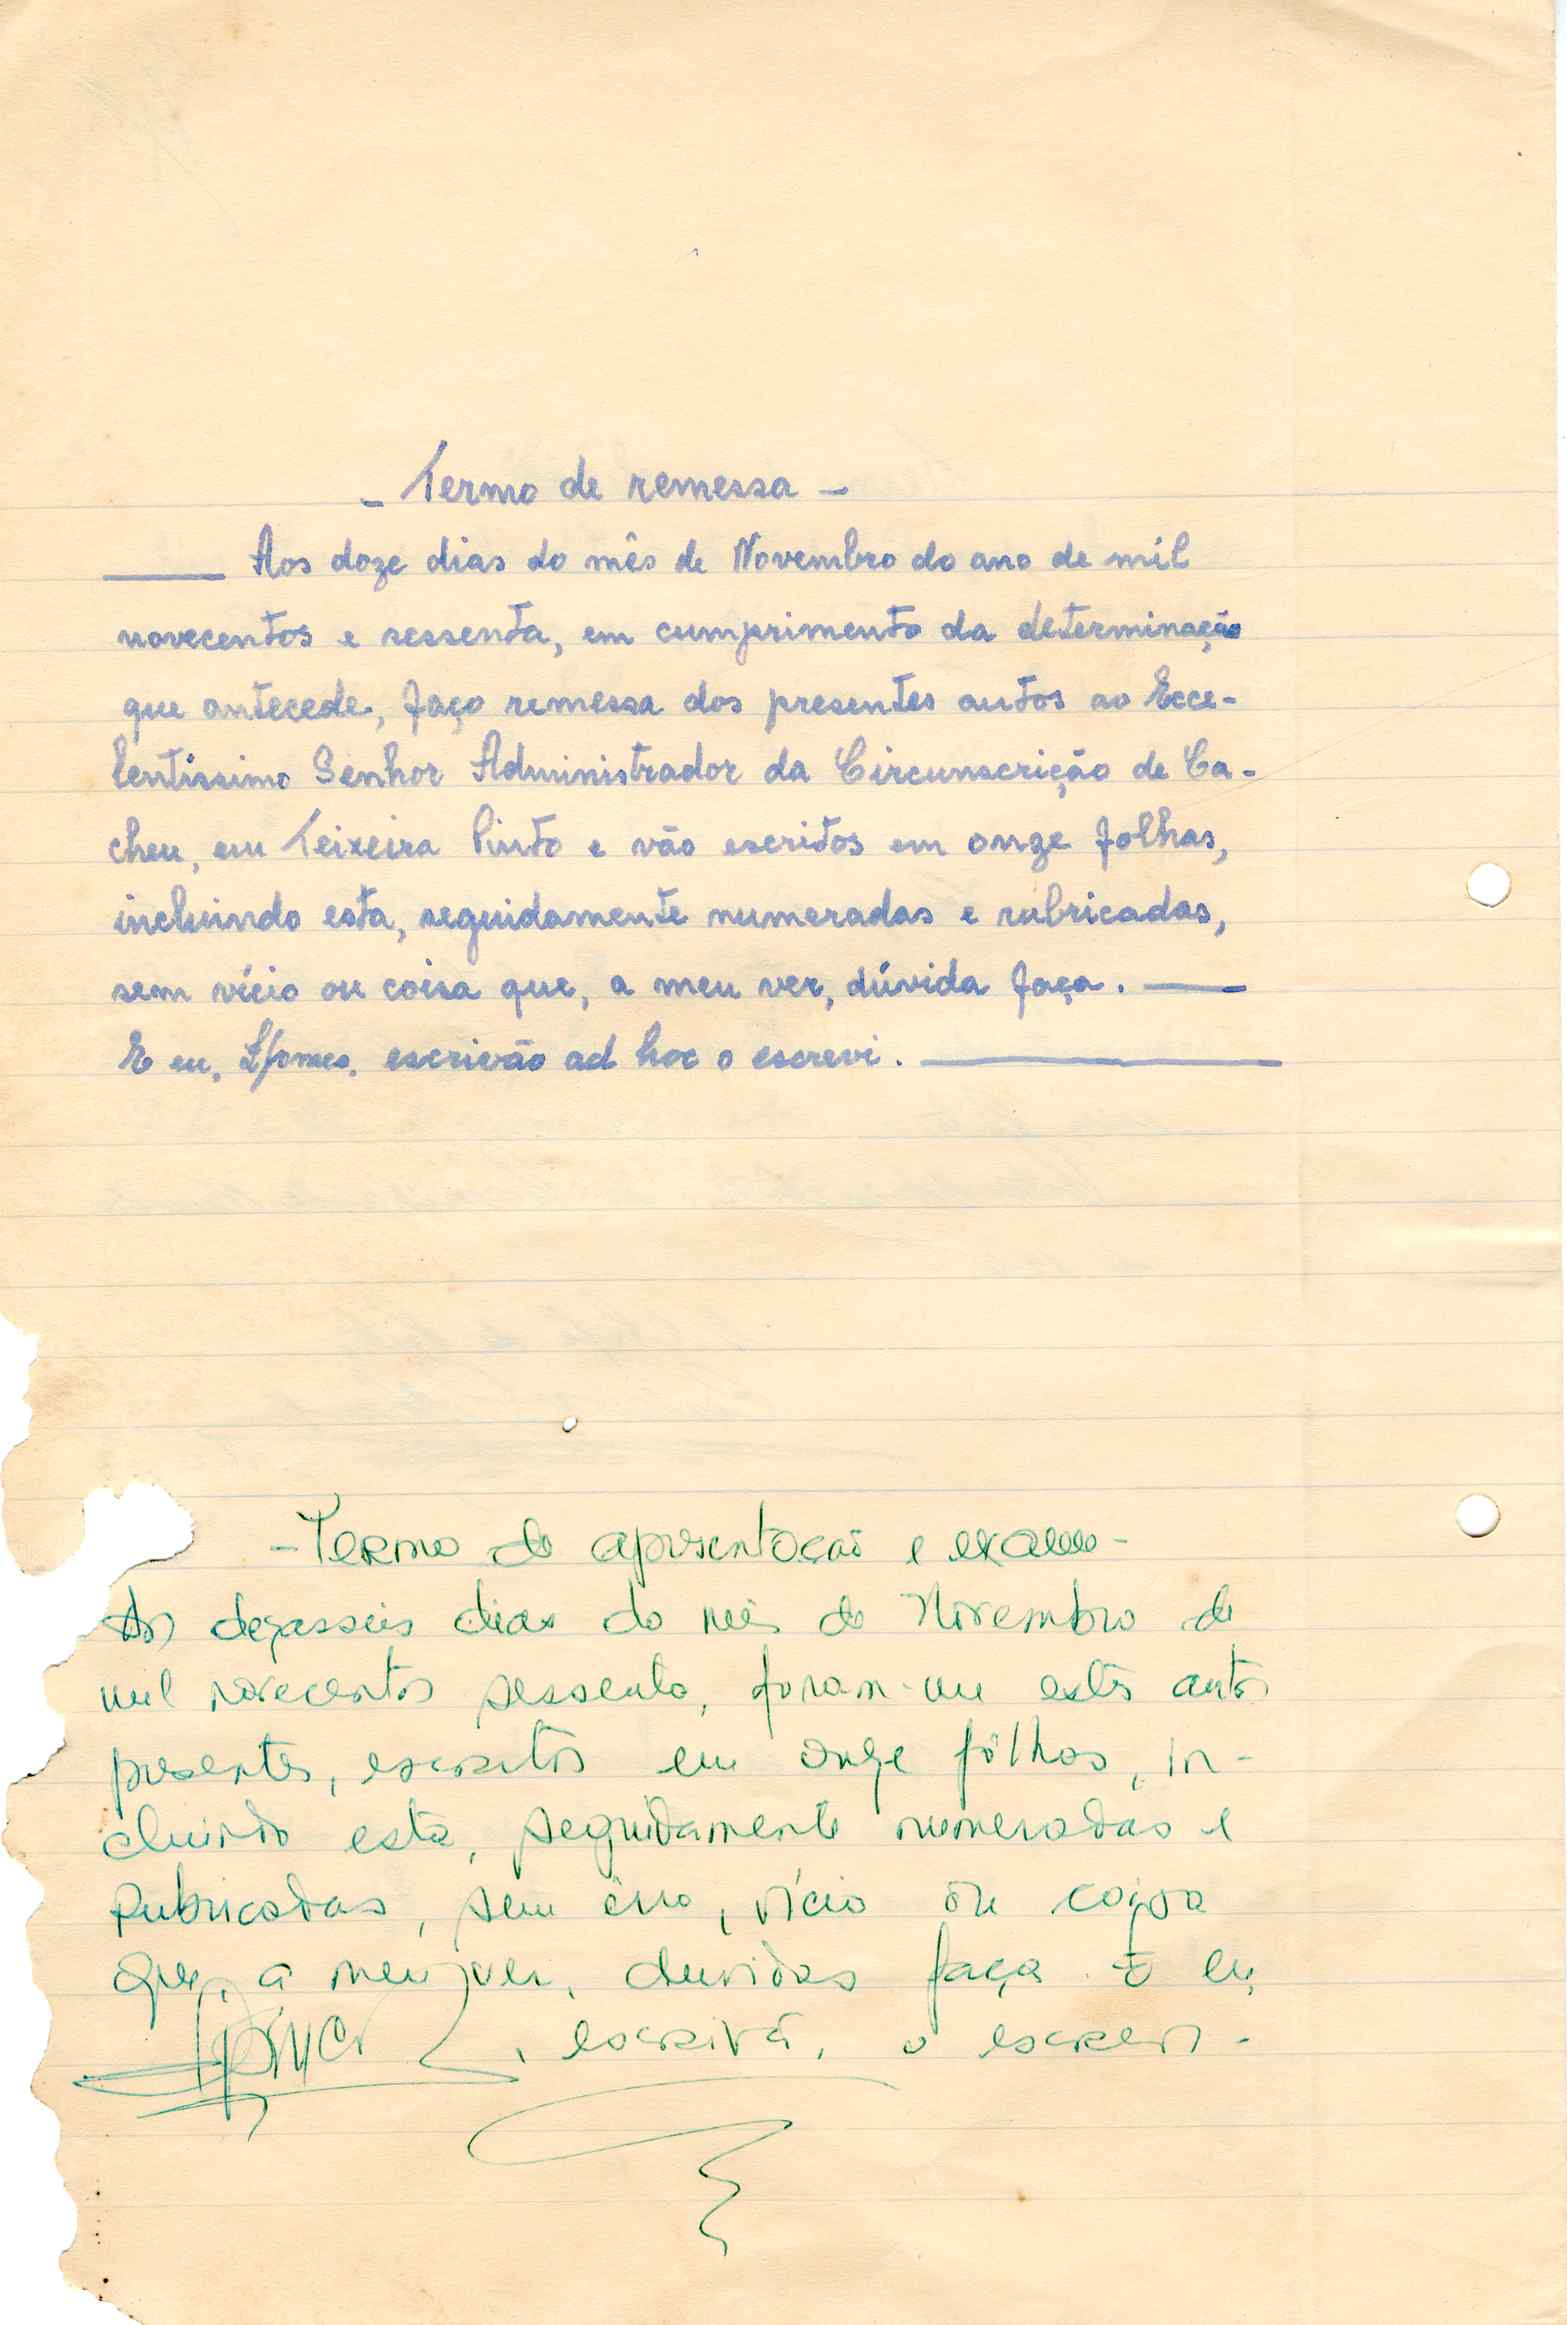 - Termo de remessa -
Aos doze dias do mês de Novembro do ano de mil
novecentos e sessenta, em cumprimento da determinação
que antecede, faço remessa dos presentes autos ao Exce-
lentíssimo Senhor Administrador da Circunscrição de Ca-
cheu, em Teixeira Pinto e vão escritos em onze folhas,
incluindo esta, seguidamente numeradas e rubricadas,
sem vício ou coisa que, a meu ver, dúvida faça.
E eu, escrivão ad hoc o escrevi.
- Termo de apresentação e exame -
Aos dezasseis dias do mês de Novembro de
mil novecentos sessenta, foram-me estes autos
presentes, escritos em onze fôlhas, in-
cluindo esta, seguidamente numeradas e
rubricadas, sem êrro, vício ou coisa
que, a meu ver, duvidas faça. E eu,
, escrivã, o escrevi -